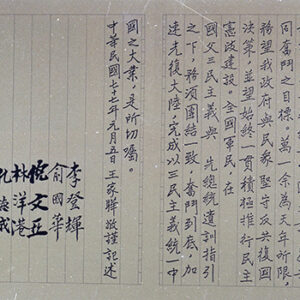 同奮鬥之目標。萬一余為天年所限，
務望我政府與民眾堅守反共復國
決策，並望始終一貫積極推行民主
憲政建設。全國軍民，在
國父三民主義與　先總統遺訓指引
之下，務須團結一致，奮鬥到底，加
速光復大陸，完成以三民主義統一中
國之大業，是所切囑。
中華民國七十七年元月五日王家驊敬謹記述
李登輝
俞國華
倪文亞
林洋港
孔德成